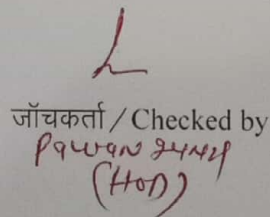 जॉचकर्ता / Checked by
Pawan
(HOD)